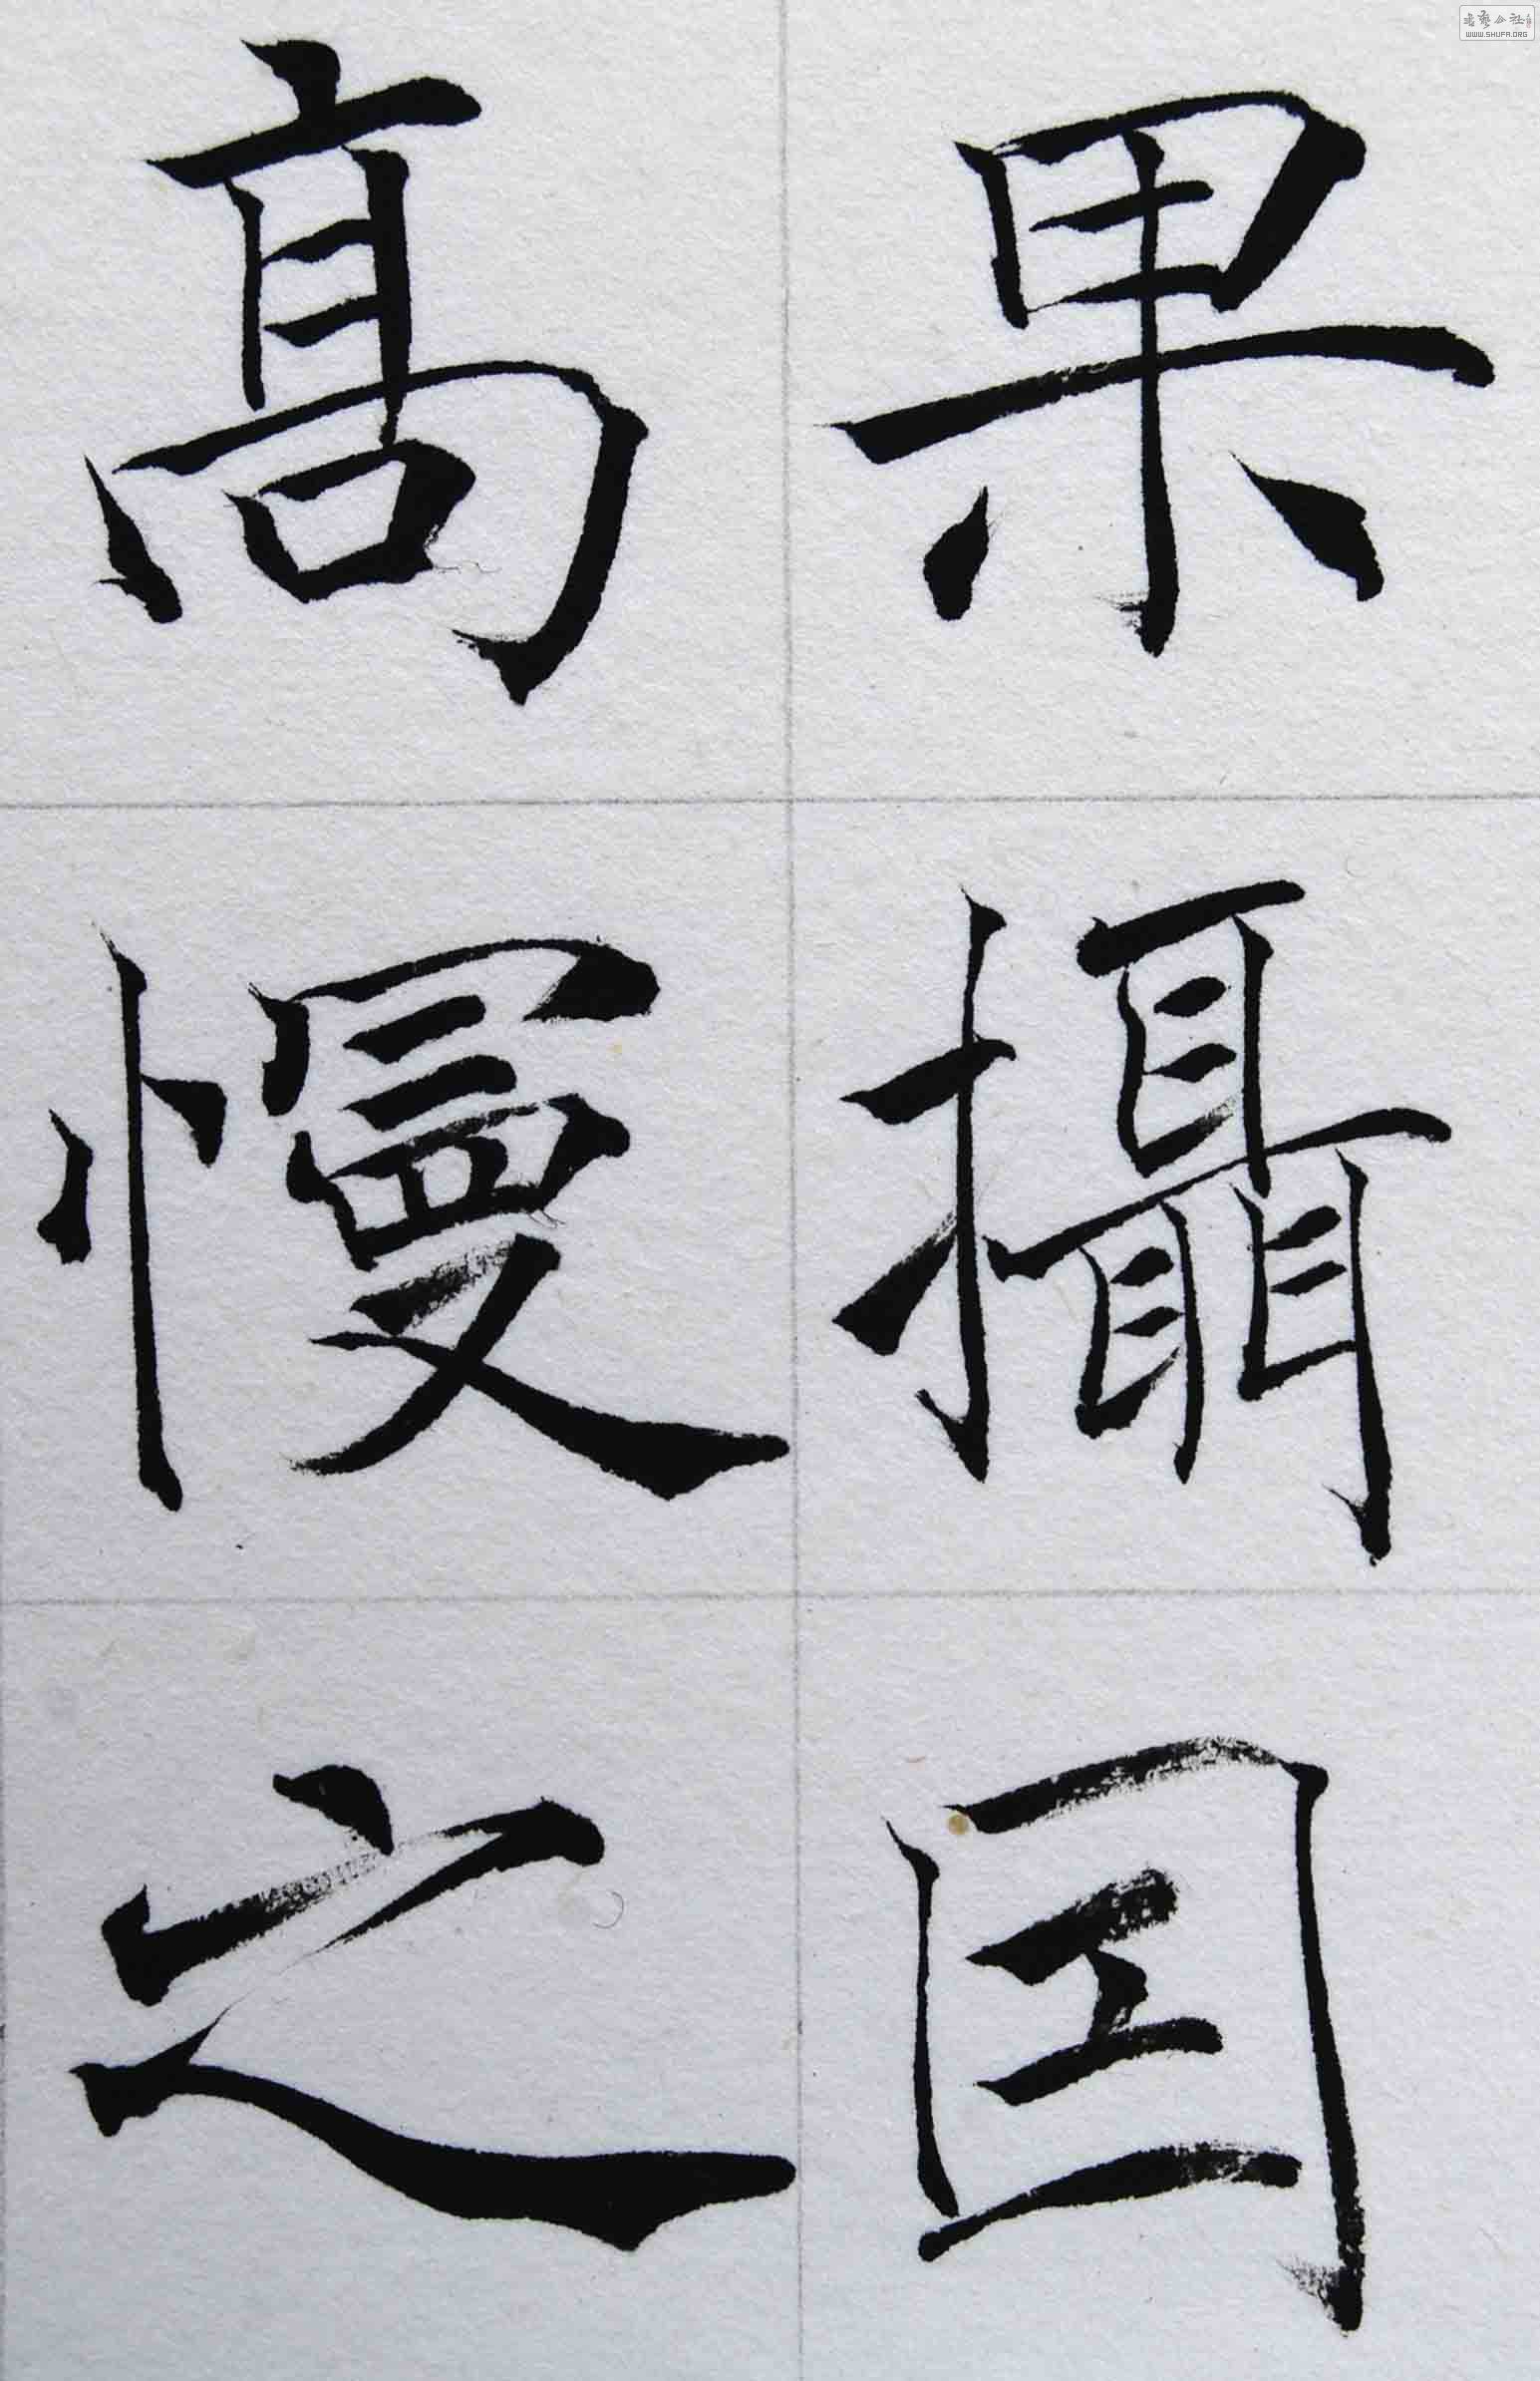 果攝囙
髙慢之
书艺公社
WWW.SHUFA.ORG